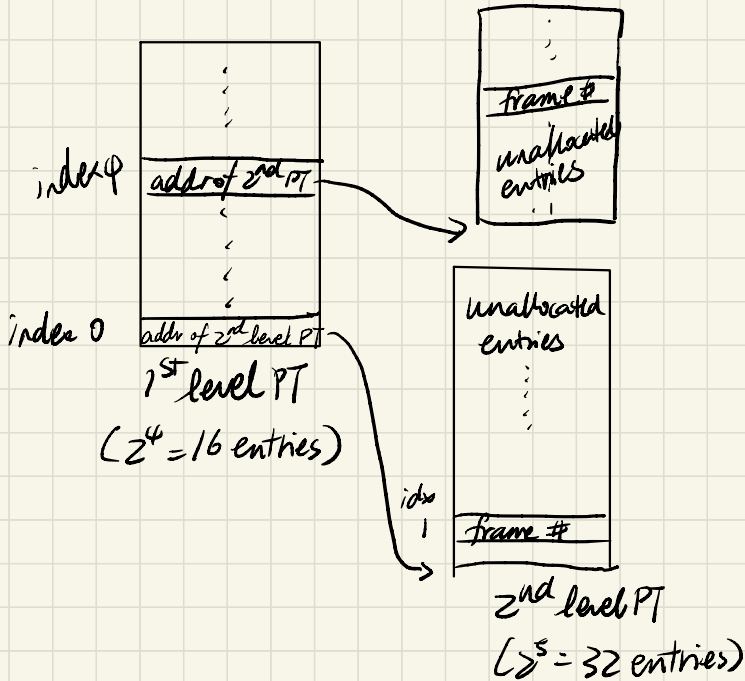 index 4
addr of 2nd PT
index 0
addr of 2nd level PT
1st level PT
(2^4 = 16 entries)
frame #
unallocated
entries
unallocated
entries
idx
1
frame #
2nd level PT
(2^5 = 32 entries)